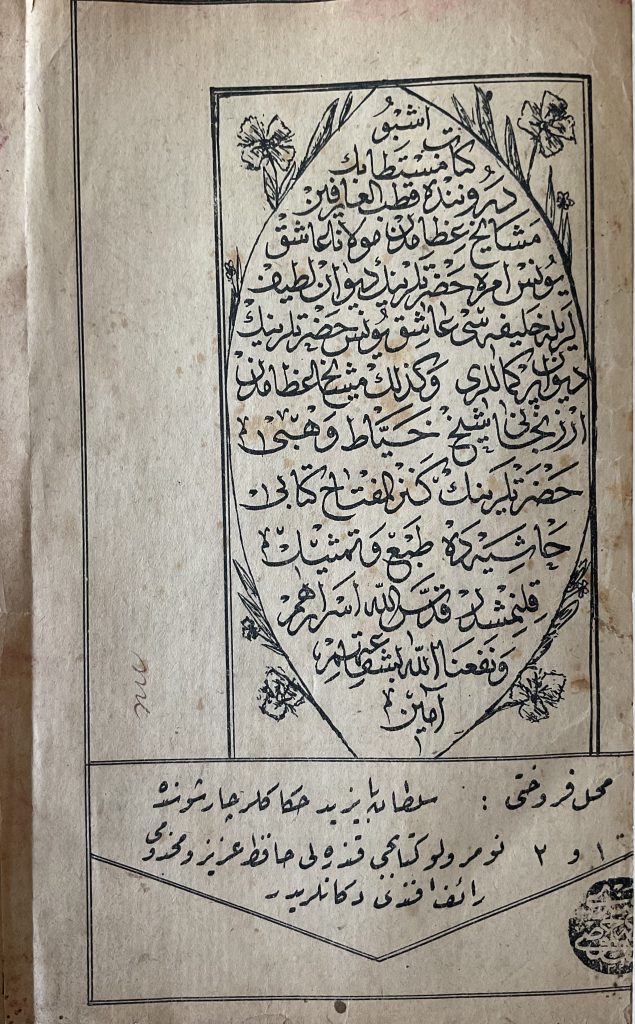 اشبو
كتاب مستطابك
درونده قطب العارفين
مشايخ عظامدن مولانا عاشق
يونس امره حضرتلرينك ديوان لطيف
لريله خليفه سى عاشق يونس حضرتلرينك
ديوان كماللرى وكذلك مشايخ العظامدن
ارزنجانى شيخ خياط وهبى
حضرتلرينك كنز المفتاح كتابى
حاشيه ده طبع وتمثيل
قلنمشدر قدس الله اسرارهم
ونفعنا الله بشفاعتهم
آمين
محل فروختى : سلطان بايزيد حكاكلر چارشوسنده
١ و ٢ نومرولو كتابجى قنده لى حافظ عزيز ومخدومى
رائف افندى دكانلريدر